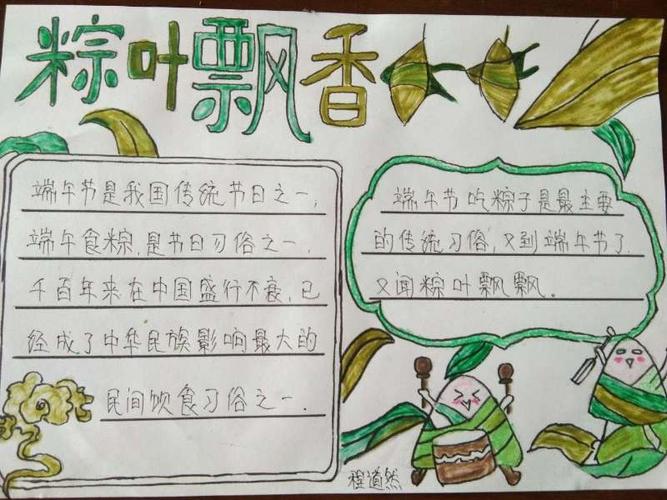 粽叶飘香
端午节是我国传统节日之一,
端午食粽,是节日习俗之一.
千百年来在中国盛行不衰,已
经成了中华民族影响最大的
民间饮食习俗之一.
端午节吃粽子是最主要
的传统习俗,又到端午节了.
又闻粽叶飘飘.
程道然